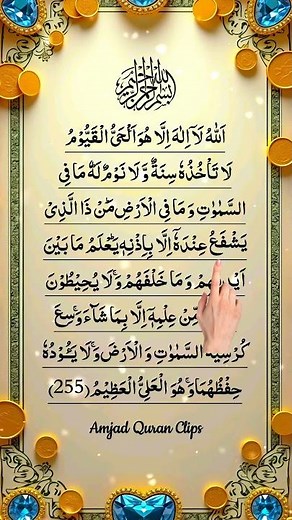 بسم الله الرحمن الرحيم
اَللّٰهُ لَاۤ اِلٰهَ اِلَّا هُوَ اَلْحَیُّ الْقَیُّوْمُ
لَا تَاْخُذُهٗ سِنَةٌ وَّ لَا نَوْمٌ لَهٗ مَا فِی
السَّمٰوٰتِ وَ مَا فِی الْاَرْضِ مَنْ ذَا الَّذِیْ
یَشْفَعُ عِنْدَهٗۤ اِلَّا بِاِذْنِهٖ یَعْلَمُ مَا بَیْنَ
وَ مَا خَلْفَهُمْ وَ لَا یُحِیْطُوْنَ
مِّنْ عِلْمِهٖۤ اِلَّا بِمَا شَآءَ وَسِعَ
كُرْسِیُّهُ السَّمٰوٰتِ وَ الْاَرْضَ وَ لَا یَـُٔوْدُهٗ
حِفْظُهُمَا وَ هُوَ الْعَلِیُّ الْعَظِیْمُ (255)
Amjad Quran Clips